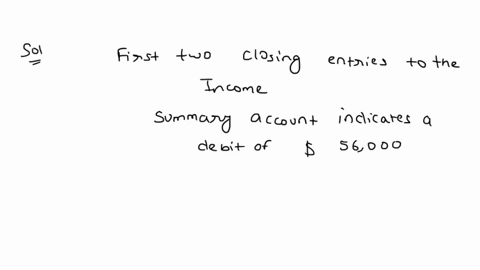 Sol
First two closing entries to the
Income
Summary account indicates a
debit of $ 56,000